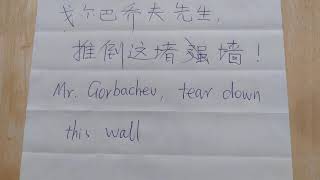 戈尔巴乔夫先生,
推倒这堵强墙!
Mr. Gorbachev, tear down
this wall